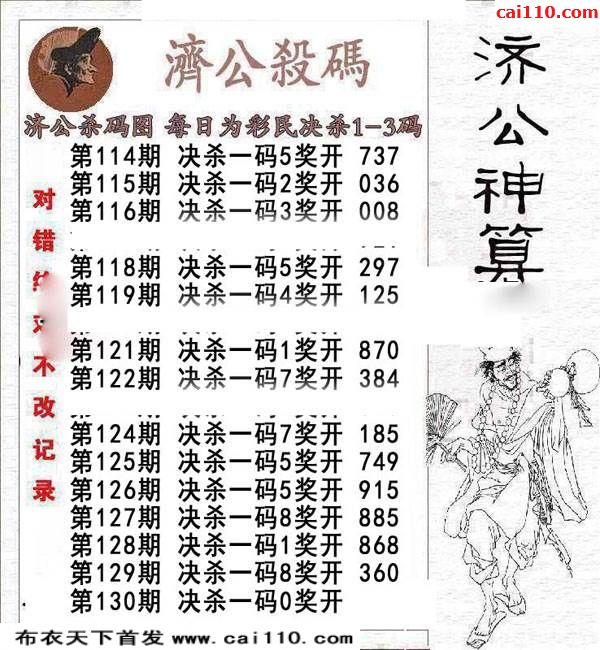 cai110.com
濟公殺碼
济公杀码图 每日为彩民决杀1-3码
第114期 决杀一码5奖开 737
第115期 决杀一码2奖开 036
第116期 决杀一码3奖开 008
第118期 决杀一码5奖开 297
第119期 决杀一码4奖开 125
第121期 决杀一码1奖开 870
第122期 决杀一码7奖开 384
第124期 决杀一码7奖开 185
第125期 决杀一码5奖开 749
第126期 决杀一码5奖开 915
第127期 决杀一码8奖开 885
第128期 决杀一码1奖开 868
第129期 决杀一码8奖开 360
第130期 决杀一码0奖开
对错
不改记录
济公神算
布衣天下首发 www.cai110.com